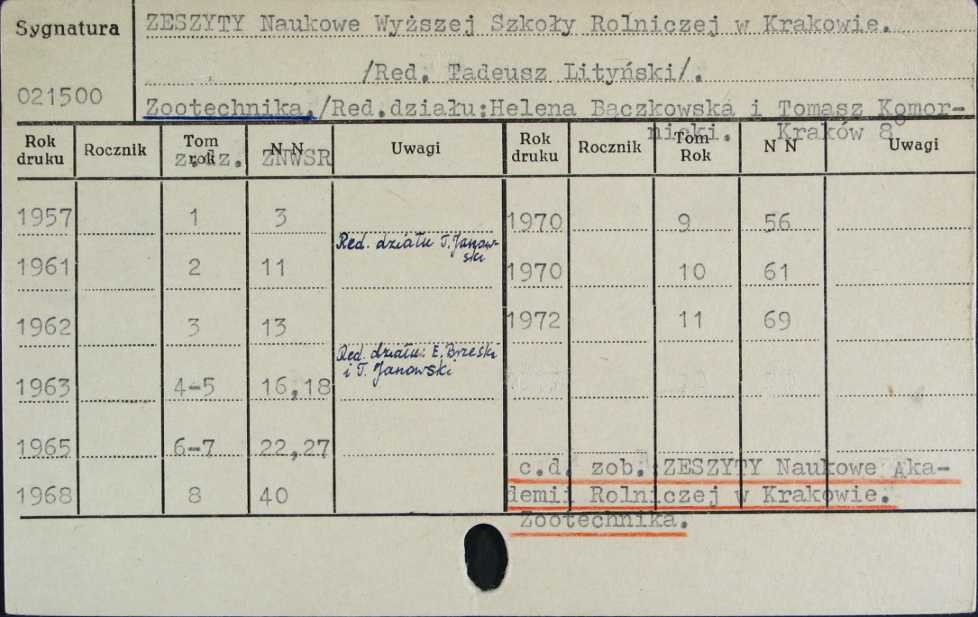 Sygnatura
ZESZYTY Naukowe Wyższej Szkoły Rolniczej w Krakowie.
/Red. Tadeusz Lityński/.
021500
Zootechnika./Red.działu:Helena Bączkowska i Tomasz Komor-
nicki. Kraków 8°
Rok druku Rocznik Tom rok N N Uwagi Rok druku Rocznik Tom Rok N N Uwagi
z.dz. ZNWSR
1957 1 3 1970 9 56
Red. działu T. Janow-
ski
1961 2 11 1970 10 61
1962 3 13 1972 11 69
Red. działu: E. Brzeski
i T. Janowski
1963 4-5 16,18
1965 6-7 22,27
c.d. zob. ZESZYTY Naukowe Aka-
1968 8 40 demii Rolniczej w Krakowie.
Zootechnika.